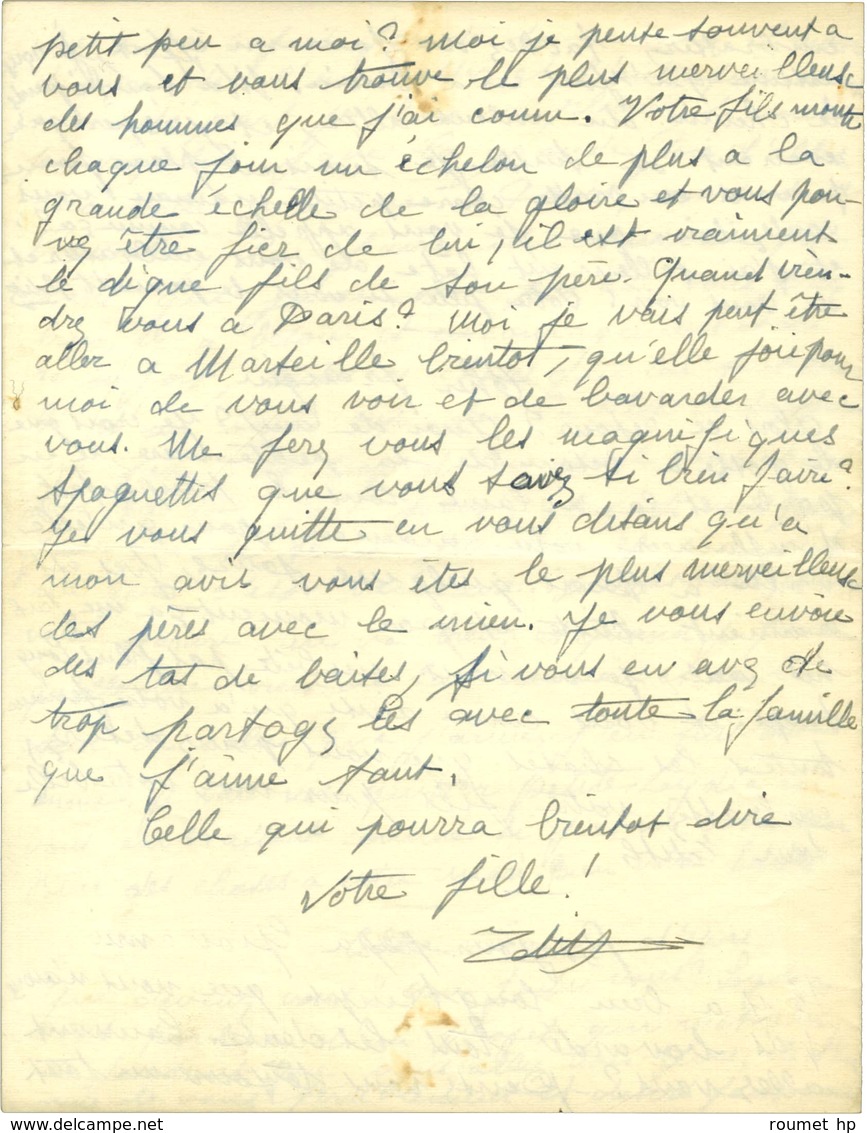 petit peu a moi? Moi je pense souvent a
vous et vous trouve le plus merveilleux
des hommes que j'ai connu. Votre fils monte
chaque jour un échelon de plus a la
grande échelle de la gloire et vous pou-
vez être fier de lui, il est vraiment
le digne fils de son père. Quand vien-
drez vous a Paris? Moi je vais peut être
aller a Marseille bientot, qu'elle joie pour
moi de vous voir et de bavarder avec
vous. Me ferez vous les magnifiques
spaguettis que vous savez si bien faire?
Je vous quitte en vous disans qu'a
mon avis vous êtes le plus merveilleux
des pères avec le mien. Je vous envoie
des tas de baises, si vous en avez de
trop partagez les avec toute la famille
que j'aime tant.
Celle qui pourra bientot dire
Votre fille!
Edith
roumet hp